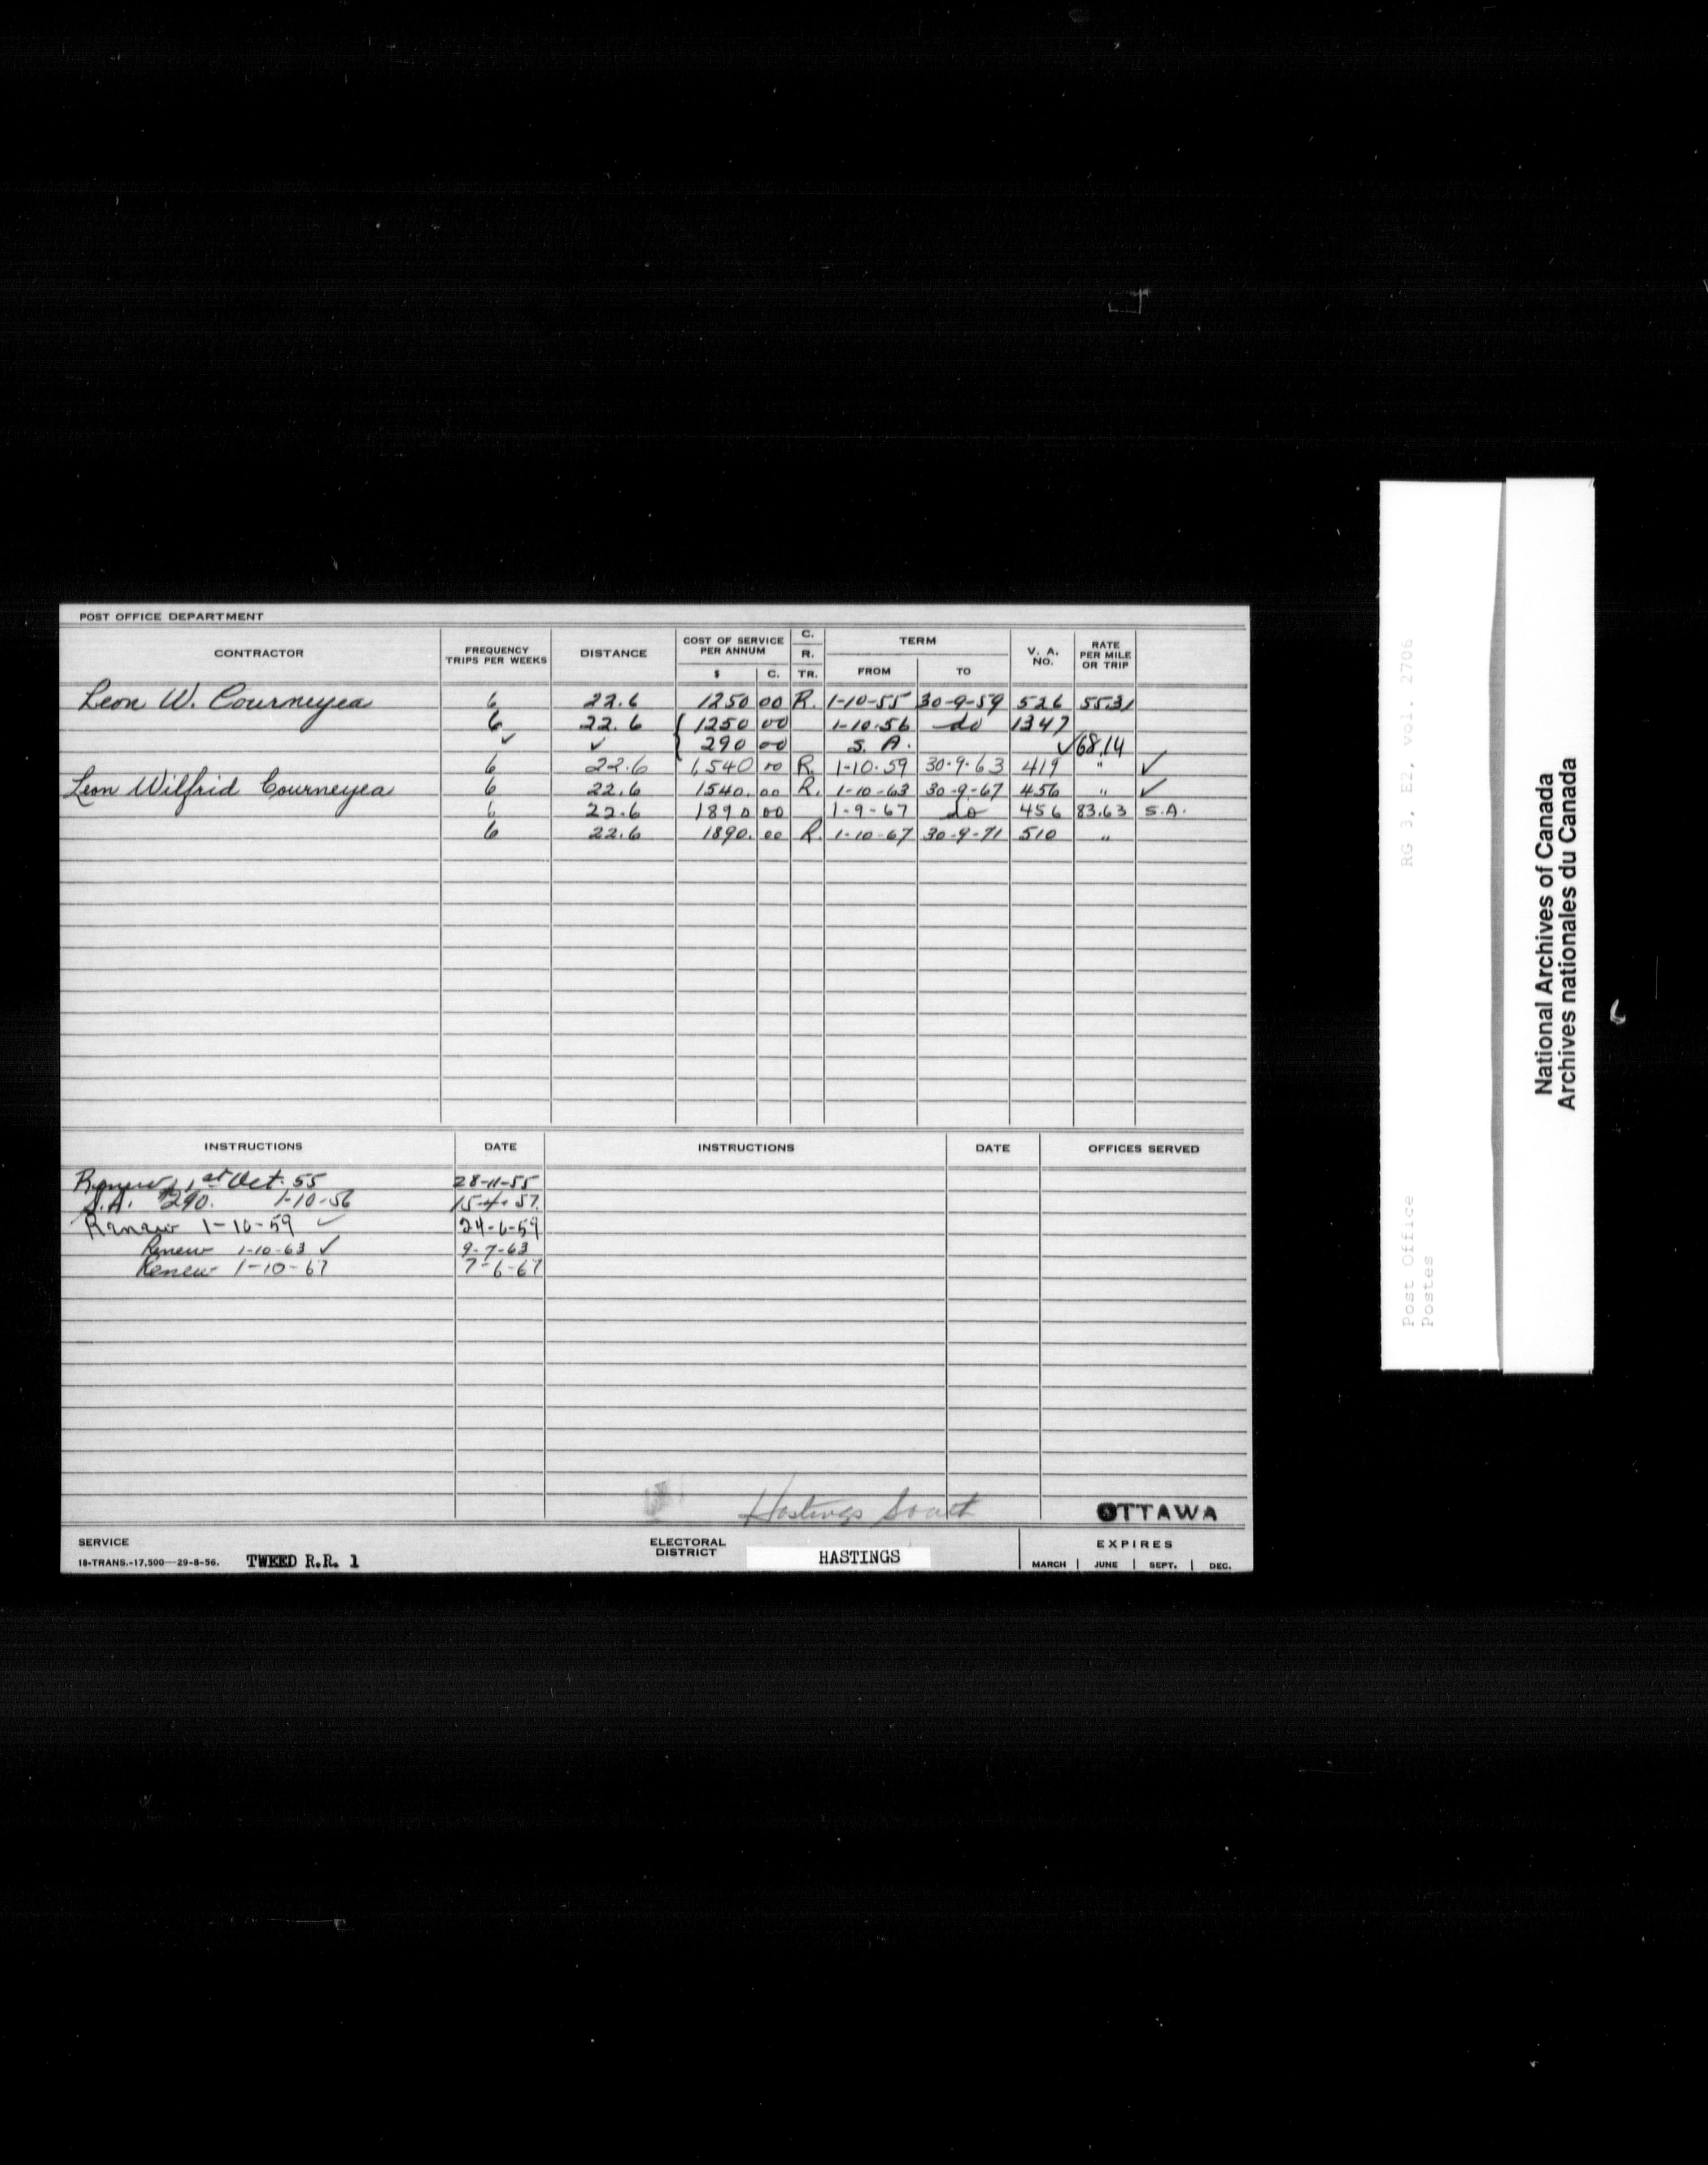 POST OFFICE DEPARTMENT
CONTRACTOR FREQUENCY TRIPS PER WEEKS DISTANCE COST OF SERVICE PER ANNUM $ C. C. R. TR. TERM FROM TO V. A. NO. RATE PER MILE OR TRIP
Leon W. Courneyea 6 22.6 1250 00 R. 1-10-55 30-9-59 526 55.31
6 22.6 { 1250 00 1-10-56 do 1347
✓ ✓ { 290 00 S. A. ✓ 68.14
6 22.6 1,540 00 R. 1-10-59 30-9-63 419 " ✓
Leon Wilfrid Courneyea 6 22.6 1540. 00 R. 1-10-63 30-9-67 456 " ✓
6 22.6 1890 00 1-9-67 do 456 83.63 S.A.
6 22.6 1890. 00 R. 1-10-67 30-9-71 510 "
INSTRUCTIONS DATE INSTRUCTIONS DATE OFFICES SERVED
Renew 1st Oct. 55 28-11-55
S.A. $290. 1-10-56 15-4-57.
Renew 1-10-59 ✓ 24-6-59
Renew 1-10-63 ✓ 9-7-63
Renew 1-10-67 7-6-67
Hastings South
OTTAWA
SERVICE
18-TRANS.-17,500—29-8-56. TWEED R.R. 1
ELECTORAL DISTRICT HASTINGS
EXPIRES
MARCH JUNE SEPT. DEC.
RG 3, E2, vol. 2706
Post Office
Postes
National Archives of Canada
Archives nationales du Canada